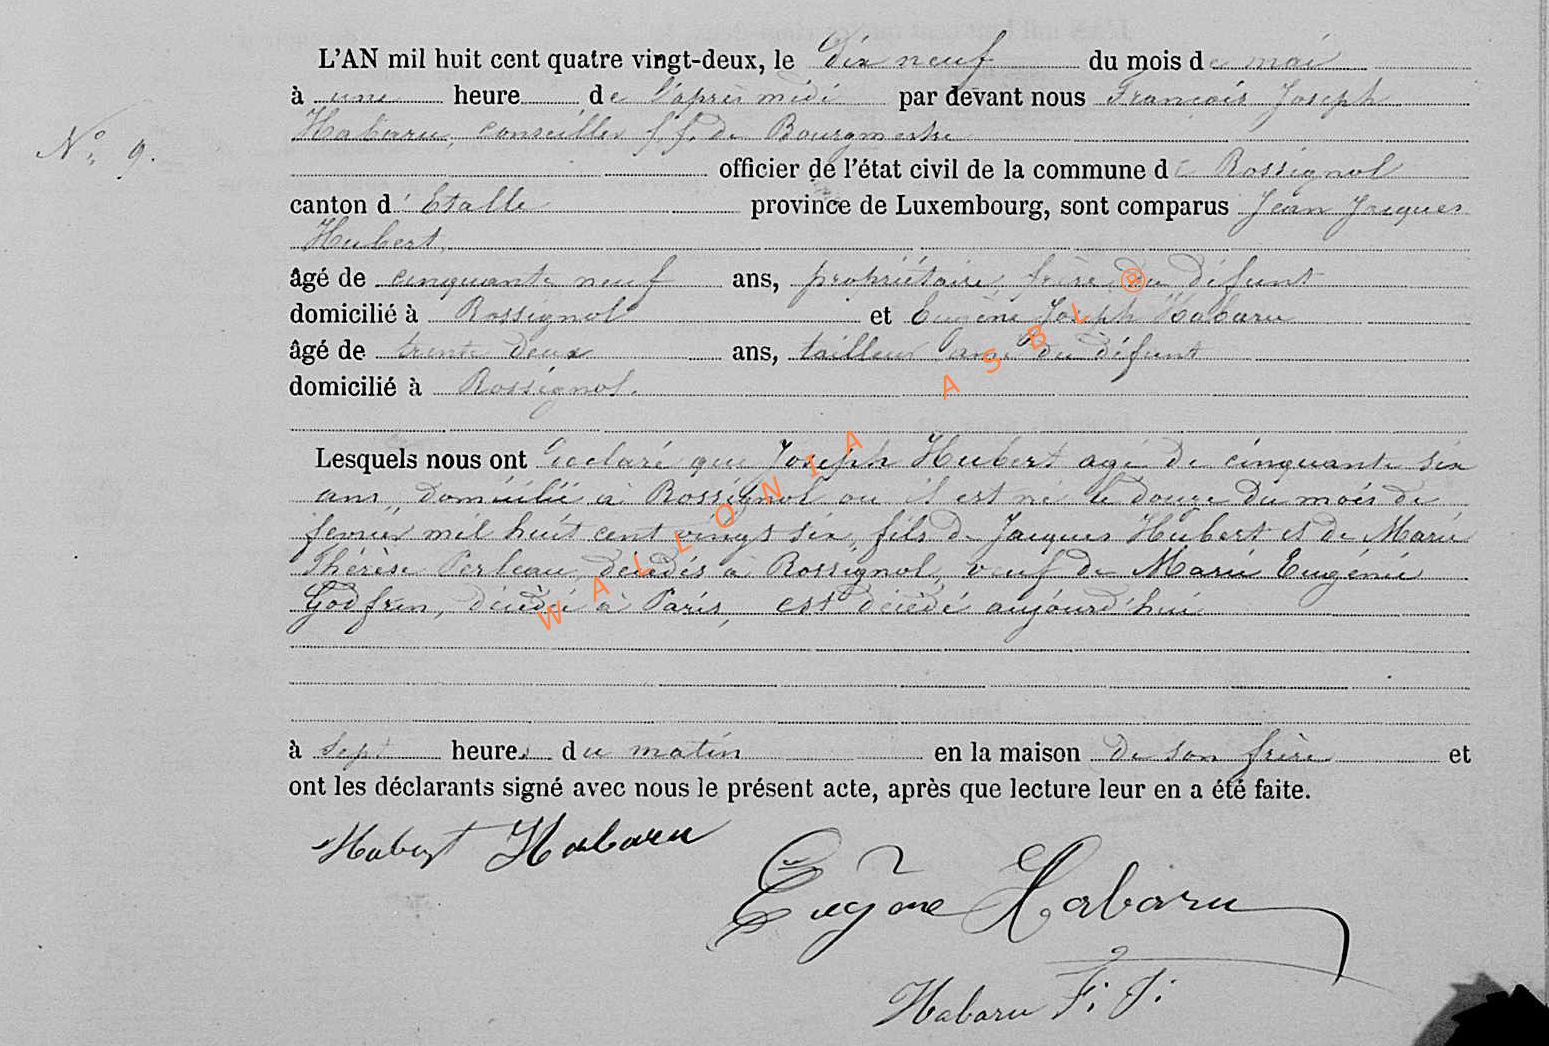 L'AN mil huit cent quatre vingt-deux, le dix neuf du mois de mai
à une heure de l'après midi par devant nous François Joseph
N° 9.
Habaru, conseiller f f. de Bourgmestre
officier de l'état civil de la commune de Rossignol
canton d'Etalle province de Luxembourg, sont comparus Jean Jacques
Hubert
âgé de cinquante neuf ans, propriétaire, frère du défunt
domicilié à Rossignol et Eugène Joseph Habaru
âgé de trente deux ans, tailleur ami du défunt
domicilié à Rossignol.
Lesquels nous ont declaré que Joseph Hubert agé de cinquante six
ans domicilié à Rossignol ou il est né le douze du mois de
fevrier mil huit cent vingt six, fils de Jacques Hubert et de Marie
Thérèse Perleau, décédés à Rossignol, veuf de Marie Eugénie
Godfrin, décédé à Paris, est décédé aujourd'hui
à sept heures du matin en la maison de son frère et
ont les déclarants signé avec nous le présent acte, après que lecture leur en a été faite.
Hubert Habaru
Eugène Habaru
Habaru F. J.
WALLONIA ASBL ®